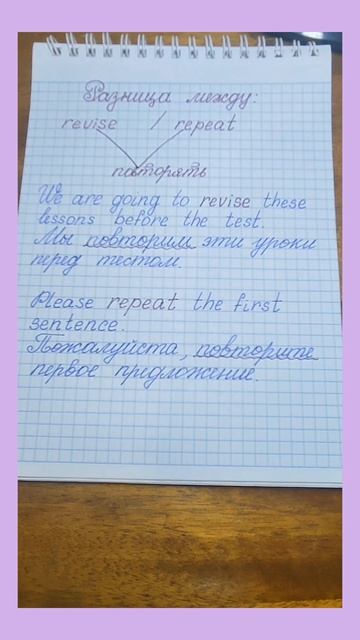 Разница между:
revise / repeat
повторять
We are going to revise these
lessons before the test.
Мы повторим эти уроки
перед тестом.
Please repeat the first
sentence.
Пожалуйста, повторите
первое предложение.